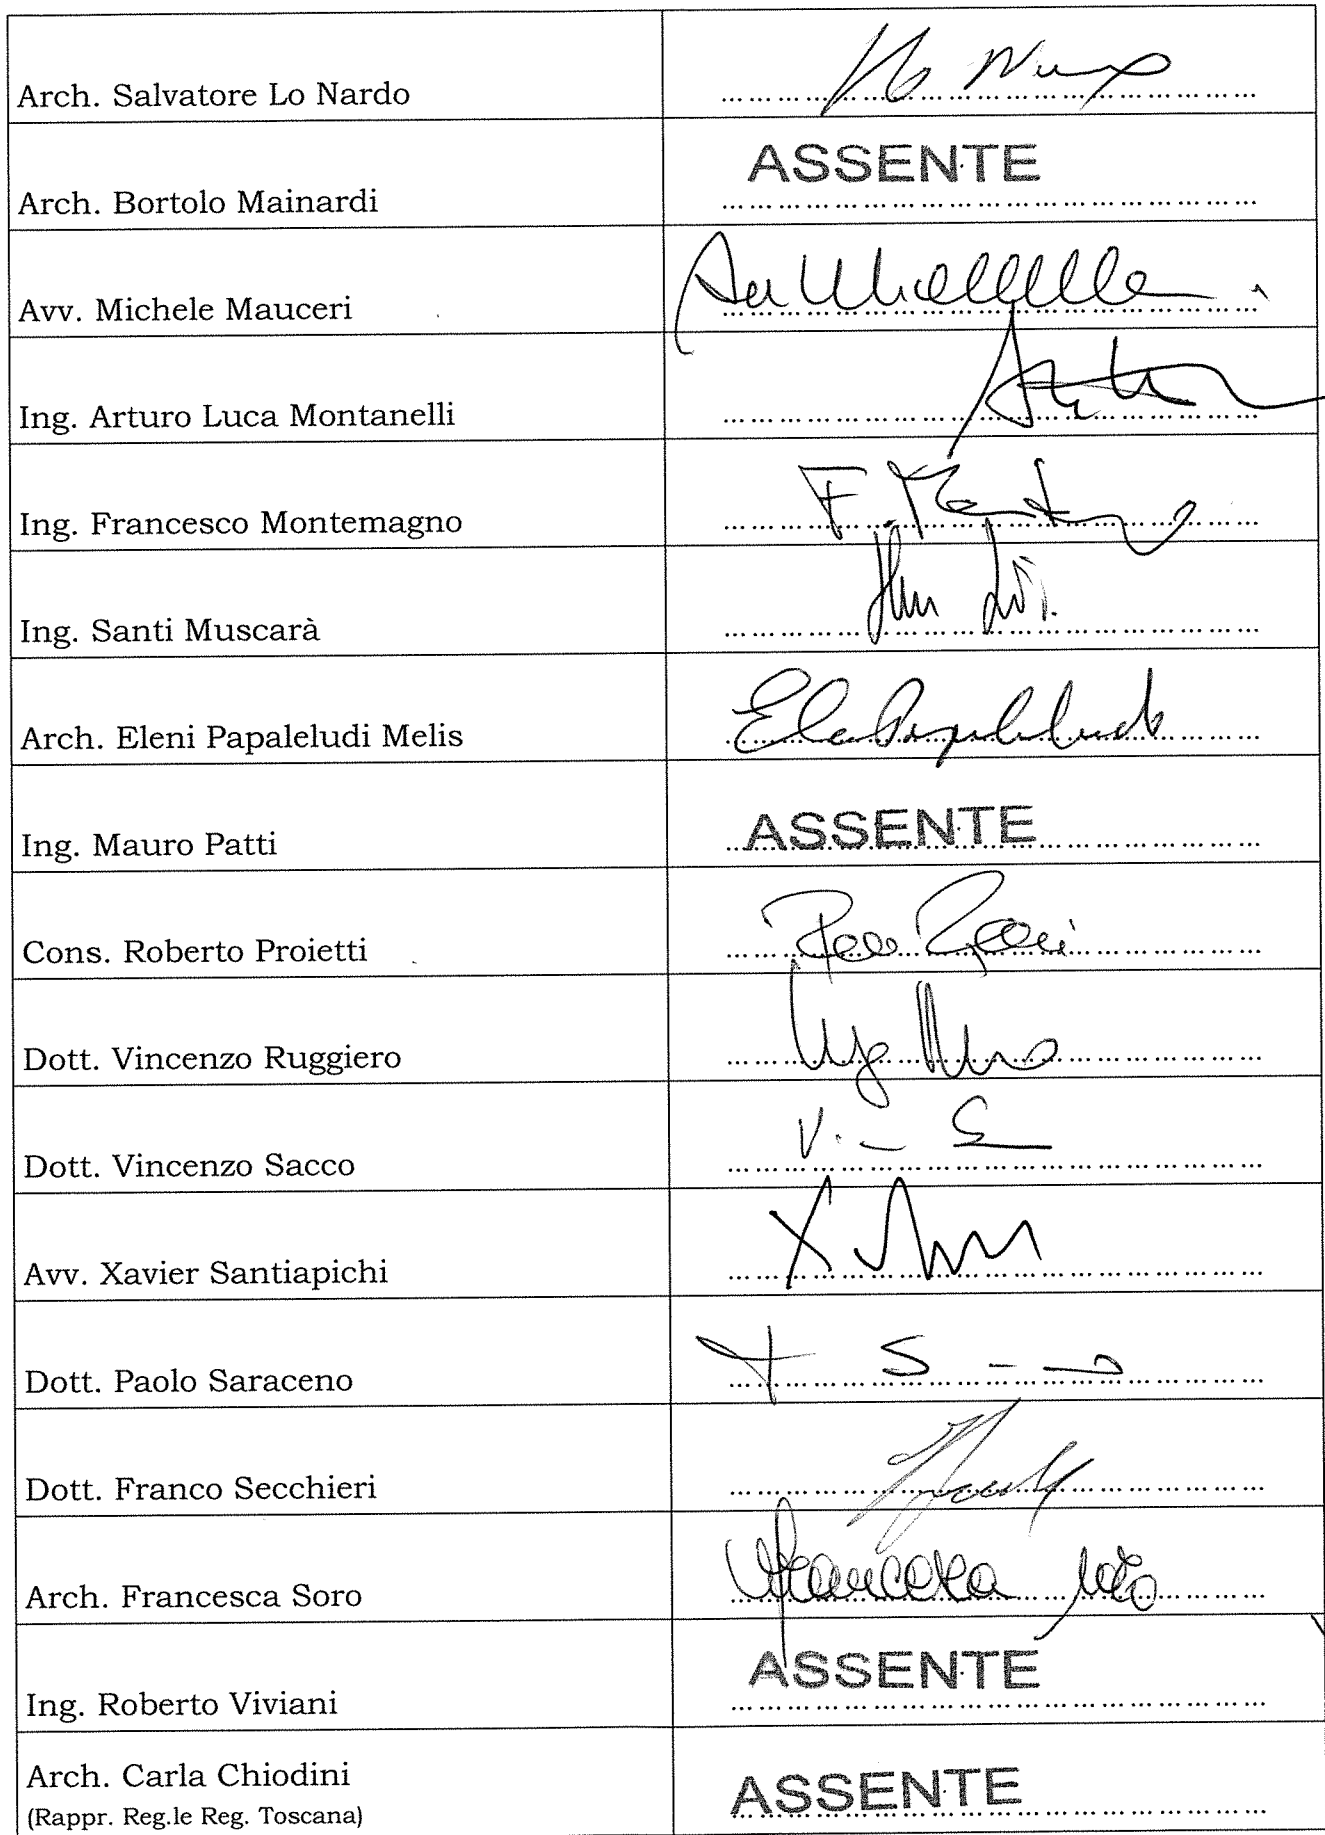 Arch. Salvatore Lo Nardo
Arch. Bortolo Mainardi
ASSENTE
Avv. Michele Mauceri
Ing. Arturo Luca Montanelli
Ing. Francesco Montemagno
Ing. Santi Muscarà
Arch. Eleni Papaleludi Melis
Ing. Mauro Patti
ASSENTE
Cons. Roberto Proietti
Dott. Vincenzo Ruggiero
Dott. Vincenzo Sacco
Avv. Xavier Santiapichi
Dott. Paolo Saraceno
Dott. Franco Secchieri
Arch. Francesca Soro
Francesca Soro
Ing. Roberto Viviani
ASSENTE
Arch. Carla Chiodini
(Rappr. Reg.le Reg. Toscana)
ASSENTE